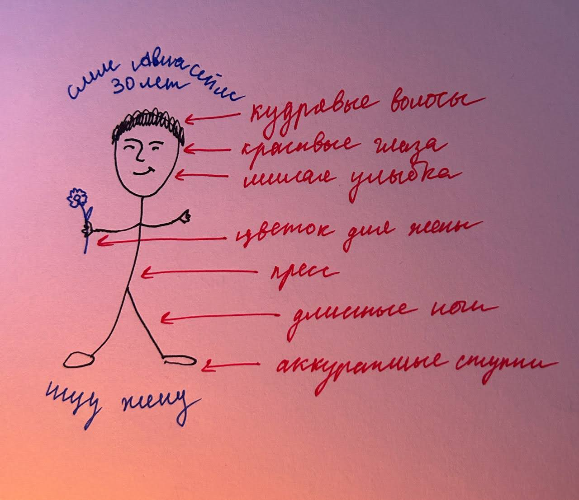 слии Авиасейлс
30 лет
кудрявые волосы
красивые глаза
милая улыбка
цветок для жены
пресс
длинные ноги
аккуратные ступни
ищу жену